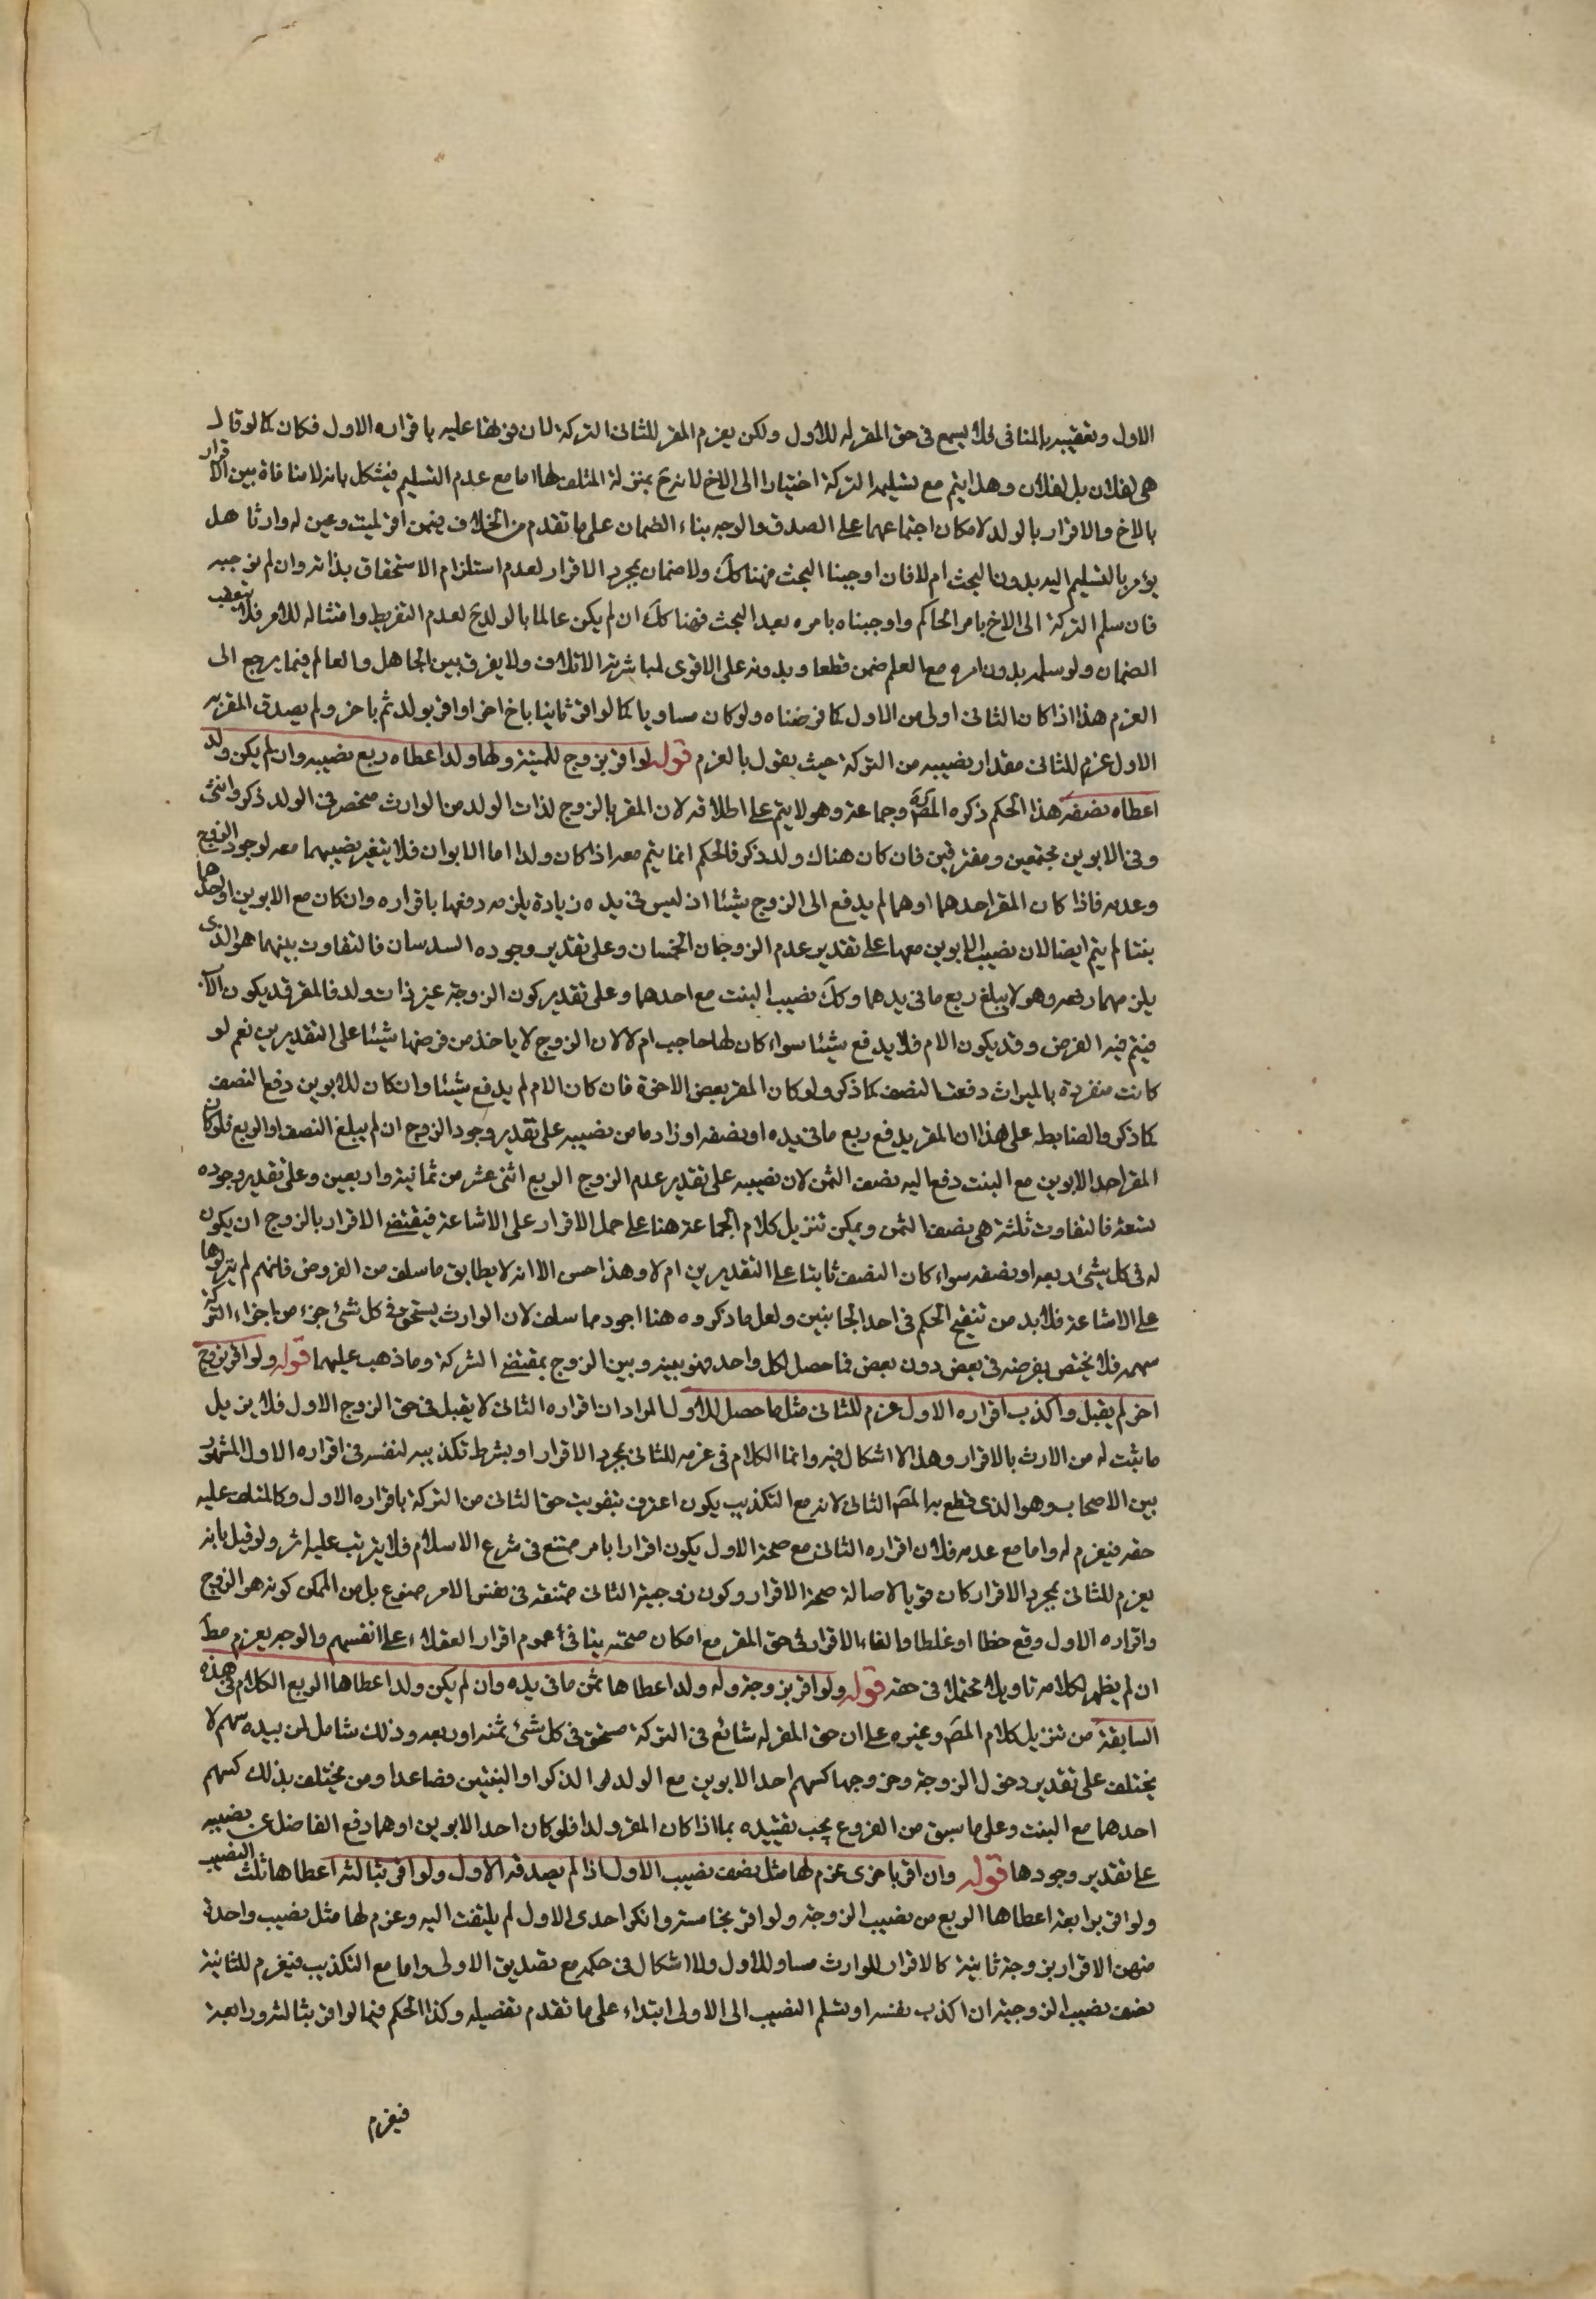 الاول وتعقيبه بالمنافى فلا يسمع فى حق المقر له للاول ولكن يغرم المقر للثانى التركة لان فوتها عليه باقراره الاول فكان كما لو قال
هى لفلان بل لفلان وهذا يتم مع تسليمه التركة اختيارا الى الاخ لانه ح بمنزلة المتلف لها اما مع عدم التسليم فيشكل بانه لا منافاة بين الاقرار
بالاخ والاقرار بالولد لامكان اجتماعهما على الصدق والوجه بناء الضمان على ما تقدم من الخلاف فيمن اقر لميت وعين له وارثا هل
يؤمر بالتسليم اليه بدون البحث ام لا فان اوجبنا البحث فهنا كك ولا ضمان بمجرد الاقرار لعدم استلزام الاستحقاق بذاته وان لم نوجبه
فان سلم التركة الى الاخ بامر الحاكم واوجبناه بامره بعد البحث فهنا كك ان لم يكن عالما بالولد ح لعدم التفريط وامتثاله للامر فلا يتعقب
الضمان ولو سلمه بدون امره مع العلم ضمن قطعا وبدونه على الاقوى لمباشرته الاتلاف ولا يفرق بين الجاهل والعالم فيما يرجع الى
الغرم هذا اذا كان الثانى اولى من الاول كما فرضناه ولو كان مساويا كما لو اقر ثانيا باخ اخر او اقر بولد ثم باخر ولم يصدق المقر به
الاول غرم للثانى مقدار نصيبه من التركة حيث يقول بالغرم قوله لو اقر بزوج للميتة ولها ولد اعطاه ربع نصيبه وان لم يكن ولد
اعطاه نصفه هذا الحكم ذكره المص ره وجماعة وهو لا يتم على اطلاقه لان المقر بالزوج لذات الولد من الوارث منحصر فى الولد ذكر وانثى
وفى الابوين مجتمعين ومفترقين فان كان هناك ولد ذكر فالحكم انما يتم معه اذا كان ولدا اما الابوان فلا يتغير نصيبهما معه لوجود الزوج
وعدمه فاذا كان المقر احدهما او هما لم يدفع الى الزوج شيئا اذ ليس فى يده زيادة يلزمه دفعها باقراره وان كان مع الابوين او احدهما
بنتا لم يتم ايضا لان نصيب الابوين معها على تقدير عدم الزوجان الخمسان وعلى تقدير وجوده السدسان فالتفاوت بينهما هو الذى
يلزمهما دفعه وهو لا يبلغ ربع ما فى يدهما وكك نصيب البنت مع احدهما وعلى تقدير كون الزوجة غير ذات ولد فالمقر قد يكون الاب
فيتم فيه الفرض وقد يكون الام فلا يدفع شيئا سواء كان لها حاجب ام لا لان الزوج لا ياخذ من فرضها شيئا على التقديرين نعم لو
كانت منفردة بالميراث دفعت النصف كما ذكر ولو كان المقر بعض الاخوة فان كان الام لم يدفع شيئا وان كان للابوين دفع النصف
كما ذكر والضابطه على هذا ان المقر يدفع ربع ما فى يده او نصفه او زاد ما من نصيبه على تقدير وجود الزوج ان لم يبلغ النصف او الربع فلو كان
المقر احد الابوين مع البنت دفع اليه نصف الثمن لان نصيبه على تقدير عدم الزوج الربع اثنى عشر من ثمانية واربعين وعلى تقدير وجوده
تسعة فالتفاوت ثلثة هى نصف الثمن ويمكن تنزيل كلام الجماعة هنا على حمل الاقرار على الاشاعة فيقتضى الاقرار بالزوج ان يكون
له فى كل شيئ ربعه او نصفه سواء كان النصف ثابتا على التقديرين ام لا وهذا حسن الا انه لا يطابق ما سلف من الفروض فانهم لم ينزلوها
على الاشاعة فلا بد من تنقيح الحكم فى احد الجانبين ولعل ما ذكروه هنا اجود مما سلف لان الوارث يستحق فى كل شئ جزء من اجزاء التركة
سهمه فلا يختص بفرضه فى بعض دون بعض فما حصل لكل واحد فهو بينه وبين الزوج بمقتضى الشركة وما ذهب عليهما قوله ولو اقر بزوج
اخر لم يقبل واكذب اقراره الاول غرم للثانى مثل ما حصل للاول المراد ان اقراره الثانى لا يقبل فى حق الزوج الاول فلا يزيل
ما ثبت له من الارث بالاقرار وهذا لا اشكال فيه وانما الكلام فى غرمه للثانى بمجرد الاقرار او بشرط تكذيبه لنفسه فى اقراره الاول المشهور
بين الاصحاب وهو الذى قطع به المص الثانى لانه مع التكذيب يكون اعترف بتفويت حق الثانى من التركة باقراره الاول وكالمتلف عليه
حقه فيغرم له واما مع عدمه فلان اقراره الثانى مع صحة الاول يكون اقرارا بامر ممتنع فى شرع الاسلام فلا يترتب عليه اثر ولو قيل بانه
يغرم للثانى بمجرد الاقرار كان قويا لاصالة صحة الاقرار وكون زوجية الثانى ممتنعة فى نفس الامر ممنوع بل من الممكن كونه هو الزوج
واقراره الاول وقع خطا او غلطا والغاء الاقرار فى حق المقر مع امكان صحته ينافى عموم اقرار العقلاء على انفسهم والوجه يغرم مط
ان لم يظهر لكلامه تاويلا محتملا فى حقه قوله ولو اقر بزوجة وله ولد اعطاها ثمن ما فى يده وان لم يكن ولد اعطاها الربع الكلام فى هذه
السابقة من تنزيل كلام المص وغيره على ان حق المقر له شائع فى التركة مستحق فى كل شئ ثمنه او ربعه وذلك شامل لمن بيده سهم لا
يختلف على تقدير دخول الزوجة وخروجها كسهم احد الابوين مع الولد الذكر او البنتين فصاعدا ومن يختلف بذلك كسهم
احدهما مع البنت وعلى ما سبق من الفروع يجب تقييده بما اذا كان المقر ولدا فلو كان احد الابوين او هما دفع الفاضل عن نصيبه
على تقدير وجودها قوله وان اقر باخرى غرم لها مثل نصف نصيب الاول اذا لم يصدقه الاول ولو اقر بثالثة اعطاها ثلث النصيب
ولو اقر برابعة اعطاها الربع من نصيب الزوجة ولو اقر بخامسة وانكر احدى الاول لم يلتفت اليه وغرم لها مثل نصيب واحدة
منهن الاقرار بزوجة ثانية كالاقرار للوارث مساو للاول ولا اشكال فى حكمه مع تصديق الاولى واما مع التكذيب فيغرم للثانية
نصف نصيب الزوجية ان اكذب نفسه او تسلم النصيب الى الاولى ابتداء على ما تقدم تفصيله وكذا الحكم فيما لو اقر بثالثة ورابعة
فيغرم